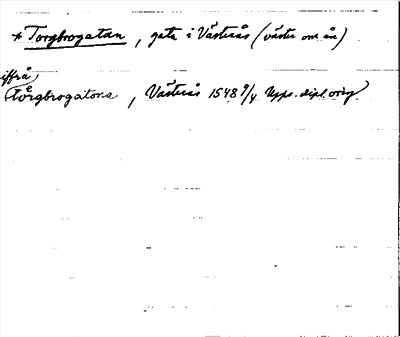 * Torgbrogatan, gata i Västerås (väster om ån)
iffrå
Torgbrogatone, Västerås 1548 9/4 Upps. dipl. orig